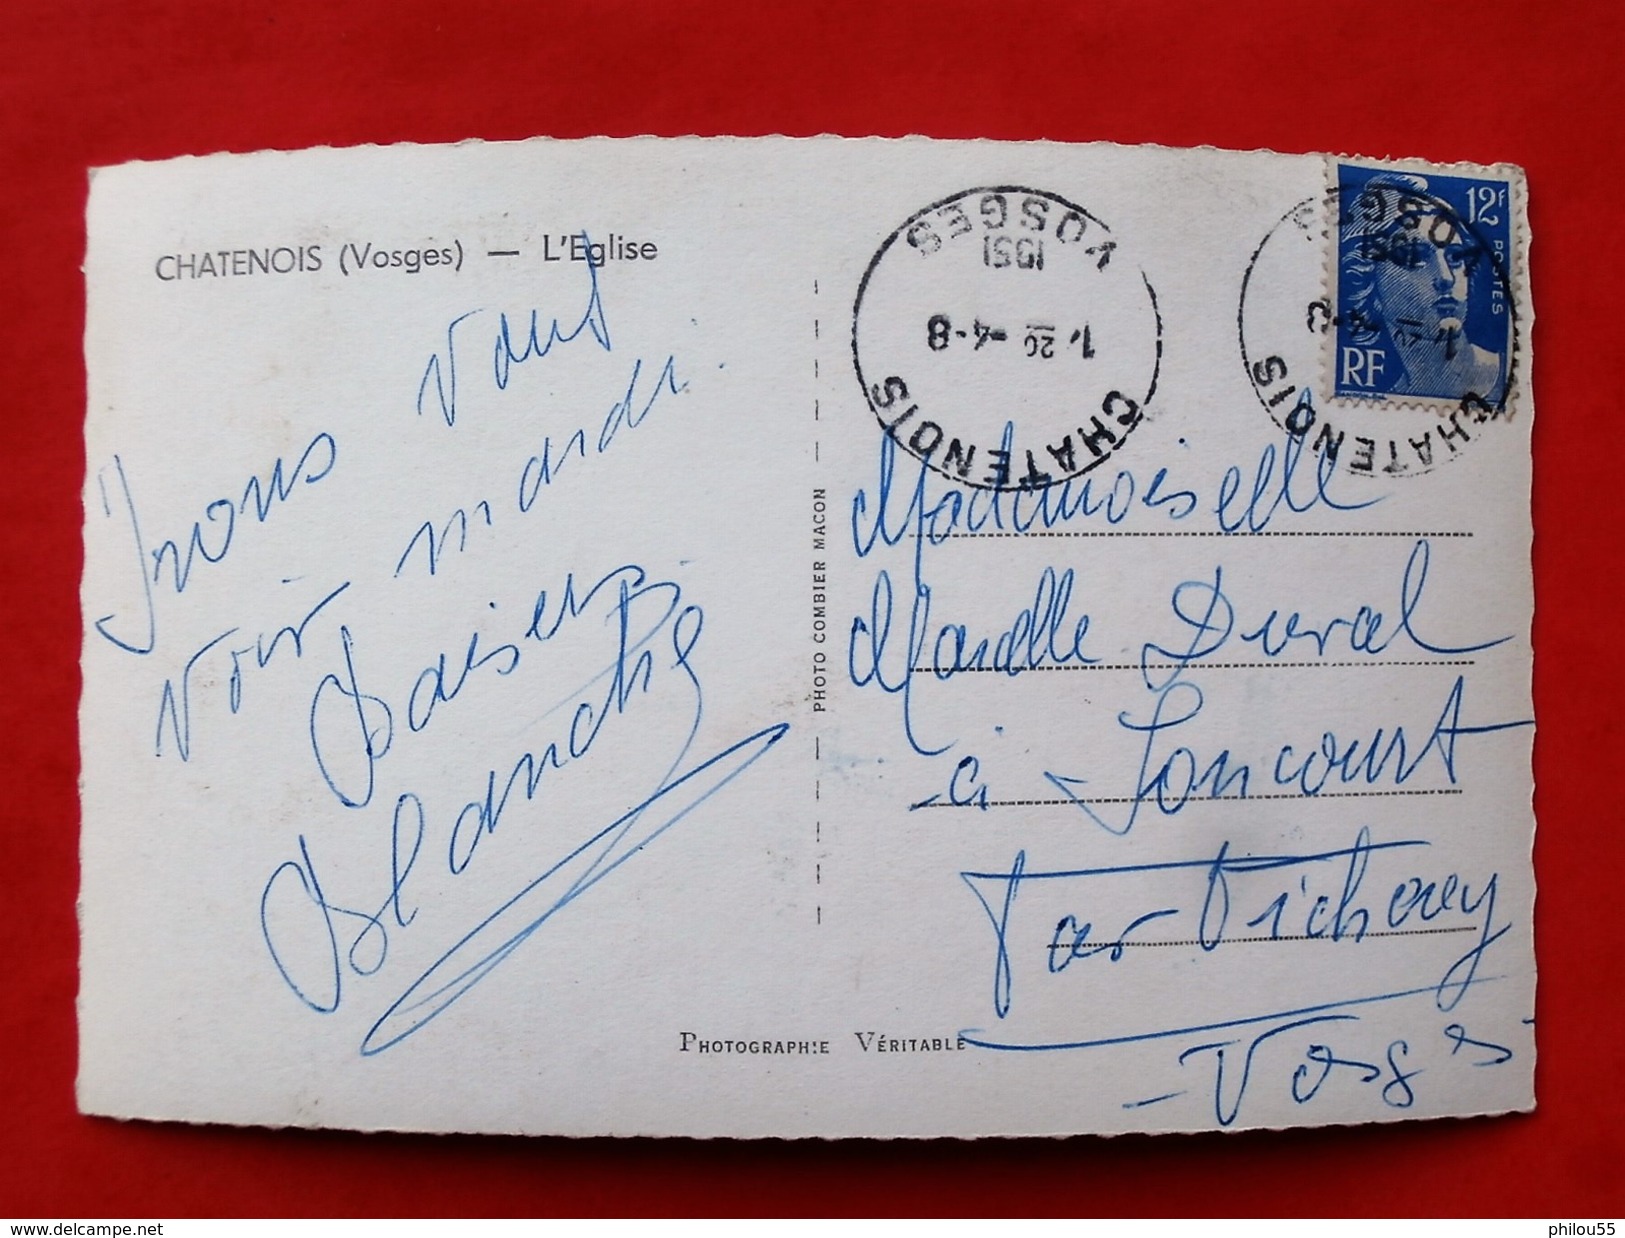 CHATENOIS (Vosges) — L'Eglise
Irons vous
voir mardi.
Baisers
Blanche
PHOTO COMBIER MACON
PHOTOGRAPHIE VÉRITABLE
VOSGES
1951
20 -4-8
CHATENOIS
VOSGES
1951
CHATENOIS
12F
POSTES
RF
Mademoiselle
Marcelle Duval
à Soncourt
par Vicherey
- Vosges
www.delcampe.net
philou55